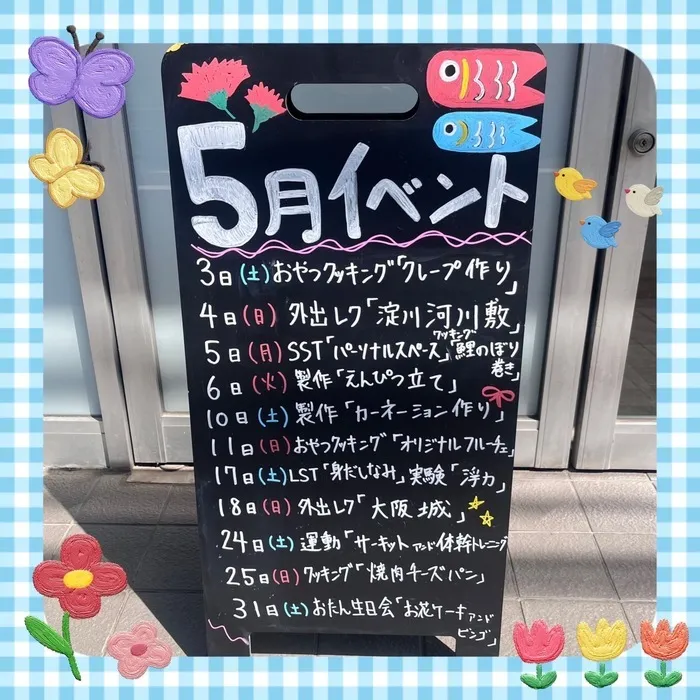 5月イベント
3日(土)おやつクッキング「クレープ作り」
4日(日) 外出レク「淀川河川敷」
5日(月)SST「パーソナルスペース」クッキング「鯉のぼり巻き」
6日(火)製作「えんぴつ立て」
10日(土)製作「カーネーション作り」
11日(日)おやつクッキング「オリジナルフルーチェ」
17日(土)LST「身だしなみ」実験「浮力」
18日(日)外出レク「大阪城」
24日(土)運動「サーキットアンド体幹トレーニング
25日(日)クッキング「焼肉チーズパン」
31日(土)おたん生日会「お花ケーキアンドビンゴ」